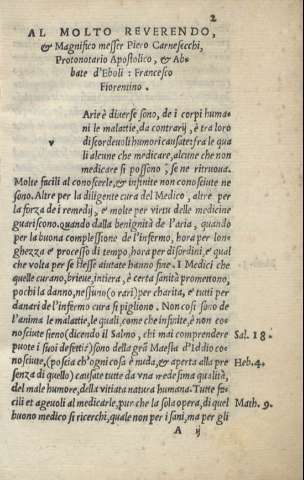 2
AL MOLTO REVERENDO,
& Magnifico messer Piero Carnesecchi,
Protonotario Apostolico, & Ab-
bate d'Eboli: Francesco
Fiorentino.
v
Arie è diuerse sono, de i corpi huma-
ni le malattie, da contrarij, è tra loro
discordeuoli humori causate: fra le qua
li alcune che medicare, alcune che non
medicare si possono, se ne ritruoua.
Molte facili al conoscerle, & infinite non conosciute ne
sono. Altre per la diligente cura del Medico, altre per
la forza de i remedij, e molte per virtu delle medicine
guariscono. quando dalla benignità de l'aria, quando
per la buona complessione de l'infermo, hora per lon-
ghezza e processo di tempo, hora per disordini, e qual
che volta per se stesse aiutate hanno fine. I Medici che
quelle curano, brieue, intiera, è certa sanità promettono,
pochi la danno, nessuno (o rari) per charita, e tutti per
danari de l'infermo cura si pigliono. Non cosi sono de
l'anima le malattie, le quali, come che infinite, è non co-
nosciute sieno (dicendo il Salmo, chi mai comprendere Sal. 18.
puote i suoi defetti?) sono della grã Maiestà d'Iddio co-
nosciute, (poscia ch'ogni cosa è nuda, & aperta alla pre Heb. 4.
senza di quello) causate tutte da vna medesima qualità,
del male humore, della vitiata natura humana. Tutte fa-
cili et ageuoli al medicarle, pur che la sola opera, di quel Math. 9.
buono medico si ricerchi, quale non per i sani, ma per gli
A ij